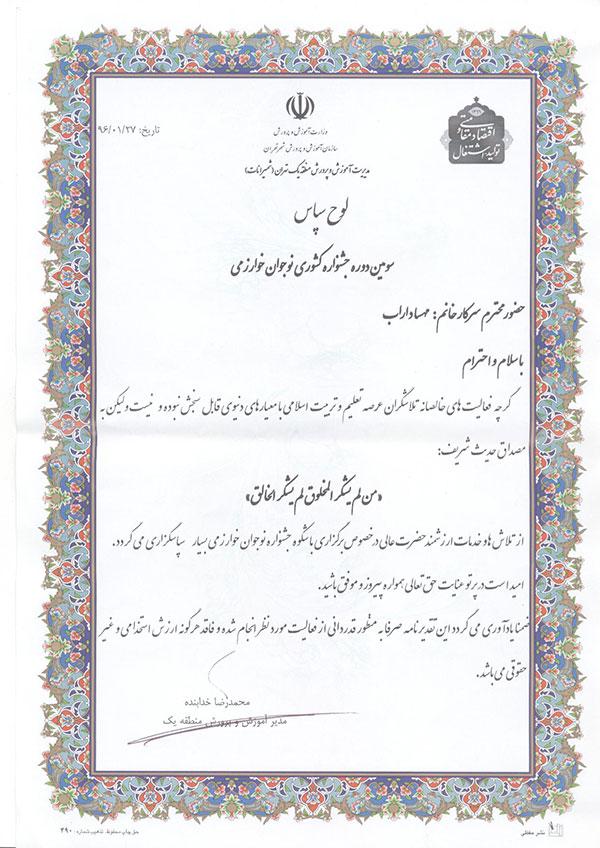 تاریخ: ۹۶/۰۱/۲۷
اقتصاد مقاومتی
تولید، اشتغال
وزارت آموزش و پرورش
سازمان آموزش و پرورش شهر تهران
مدیریت آموزش و پرورش منطقه یک تهران (شمیرانات)
لوح سپاس
سومین دوره جشنواره کشوری نوجوان خوارزمی
حضور محترم سرکار خانم: مهسا داراب
با سلام و احترام
گرچه فعالیت های خالصانه تلاشگران عرصه تعلیم و تربیت اسلامی با معیارهای دنیوی قابل سنجش نبوده و نیست ولیکن به
مصداق حدیث شریف:
«من لم یشکر المخلوق لم یشکر الخالق»
از تلاش ها و خدمات ارزشمند حضرت عالی در خصوص برگزاری باشکوه جشنواره نوجوان خوارزمی بسیار سپاسگزاری می گردد.
امید است در پرتو عنایت حق تعالی همواره پیروز و موفق باشید.
ضمنا یادآوری می گردد این تقدیرنامه صرفا به منظور قدردانی از فعالیت مورد نظر انجام شده و فاقد هرگونه ارزش استخدامی و غیر
حقوقی می باشد.
محمدرضا خدابنده
مدیر آموزش و پرورش منطقه یک
نشر مطلبی
حق چاپ محفوظ. تذهیب شماره: ۴۹۰